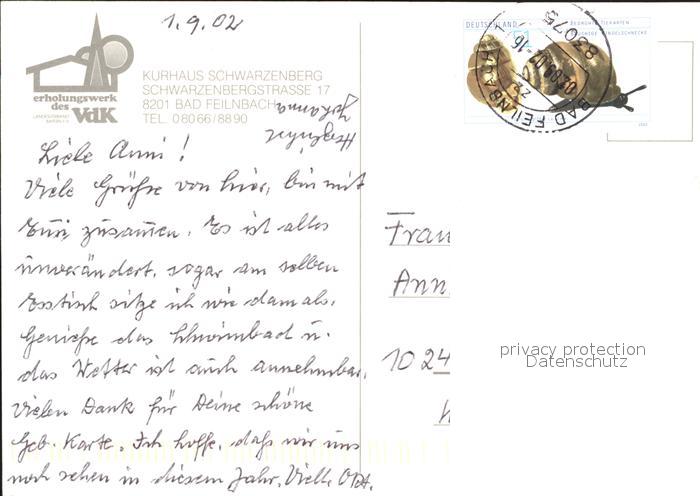 1.9.02
erholungswerk
des VdK
KURHAUS SCHWARZENBERG
SCHWARZENBERGSTRASSE 17
8201 BAD FEILNBACH
TEL. 0 80 66 / 88 90
Herzlichst
Johanna
Liebe Anni!
Viele Grüße von hier, bin mit
zusammen. Es ist alles
unverändert, sogar am selben
Esstisch sitze ich wie damals.
Genieße das Schwimmbad u.
das Wetter ist auch annehmbar.
Vielen Dank für Deine schöne
Geb. Karte. Ich hoffe, daß wir uns
noch sehen in diesem Jahr. Viell. Okt.
DEUTSCHLAND
51
BEDROHTE TIERARTEN
BAUCHIGE WINDELSCHNECKE
BAD FEILNBACH 1
02.09.02-16
83075
Frau
Ann
10 24
privacy protection
Datenschutz